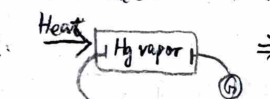 Heat
Hg vapor
G